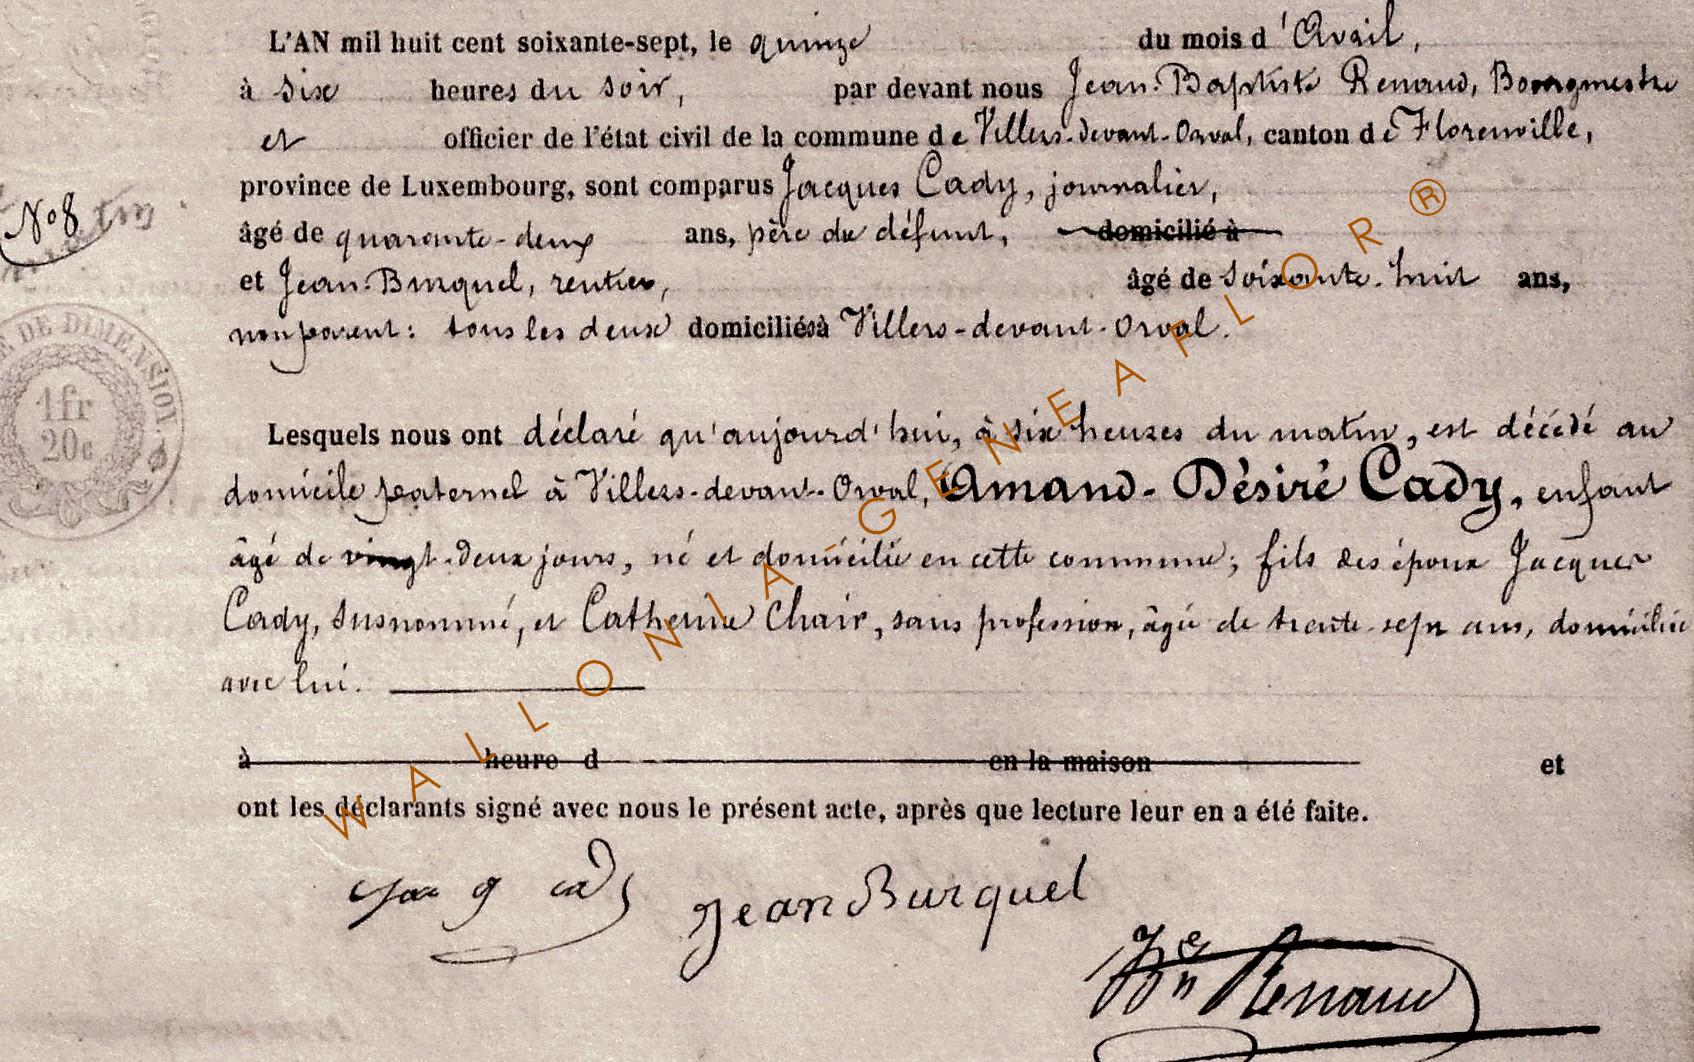 L'AN mil huit cent soixante-sept, le quinze du mois d'Avril,
à six heures du soir, par devant nous Jean-Baptiste Renaud, Bourgmestre
et officier de l'état civil de la commune de Villers-devant-Orval, canton de Florenville,
province de Luxembourg, sont comparus Jacques Cady, journalier,
N° 8
âgé de quarante-deux ans, père du défunt, domicilié à
et Jean Burquel, rentier, âgé de soixante-huit ans,
non parent: tous les deux domiciliés à Villers-devant-Orval.
E DE DIMENSION
1fr
20c
Lesquels nous ont déclaré qu'aujourd'hui, à six heures du matin, est décédé au
domicile paternel à Villers-devant-Orval, Amand-Désiré Cady, enfant
âgé de vingt-deux jours, né et domicilié en cette commune; fils des époux Jacques
Cady, susnommé, et Catherine Chair, sans profession, âgée de trente-sept ans, domiciliée
avec lui.
à heure d en la maison et
ont les déclarants signé avec nous le présent acte, après que lecture leur en a été faite.
cady Jean Burquel
Renaud
WALLONIA-GENEAFLOR®